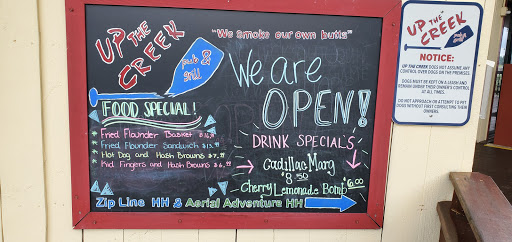 UP THE CREEK
pub & grill
"We smoke our own butts"
We are OPEN!
FOOD SPECIAL!
Fried Flounder Basket
Fried Flounder Sandwich
Hot Dog and Hash Browns
Kid Fingers and Hash Browns
DRINK SPECIALS
Cadillac Marg
$8.50
Cherry Lemonade Bomb $6.00
Zip Line HH & Aerial Adventure HH
UP THE CREEK
NOTICE:
UP THE CREEK DOES NOT ASSUME ANY
CONTROL OVER DOGS ON THE PREMISES.
DOGS MUST BE KEPT ON A LEASH AND
REMAIN UNDER THEIR OWNER'S CONTROL
AT ALL TIMES.
DO NOT APPROACH OR ATTEMPT TO PET
DOGS WITHOUT FIRST CONSULTING THEIR
OWNERS.